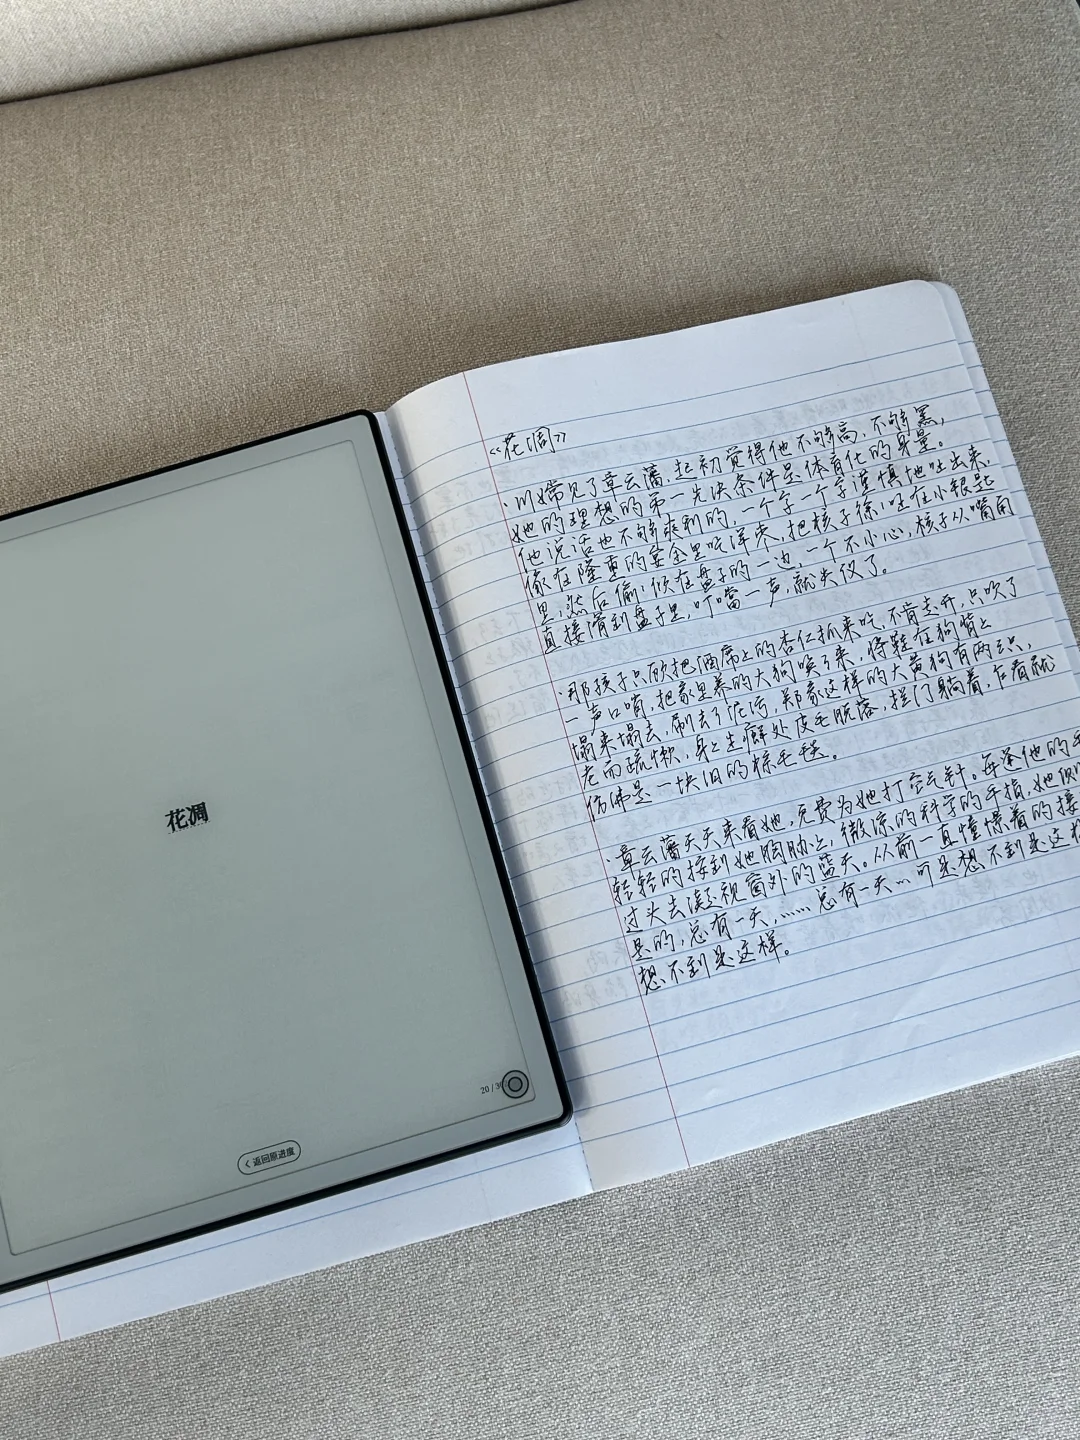 花凋
20 / 30
返回原进度
《花凋》
·川嫦见了章云藩,起初觉得他不够高,不够黑,
她的理想的第一先决条件是体育化的身量。
他说话也不够爽利的,一个字一个字谨慎地吐出来,
像在隆重的宴会里吃洋枣,把核子徐徐吐在小银匙
里,然后偷偷倾在盘子的一边,一个不小心,核子从嘴角
直接滑到盘子里,叮当一声,就失仪了。
·那孩子只顾把酒席上的杏仁抓来吃,不肯走开,只吹了
一声口哨,把家里养的大狗唤了来,将鞋在狗背上
塌来塌去,刷去了泥污,郑家这样的大黄狗有两三只,
老而疏懒,身上生癣处皮毛脱落,拦门躺着,乍看就
仿佛是一块旧的棕毛毯。
·章云藩天天来看她,免费为她打空气针。每逢他的手
轻轻的按到她胸肋上,微凉的科学的手指,她便
过头去凝视窗外的蓝天。从前一直憧憬着的接
是的,总有一天,……总有一天…可是想不到是这样
想不到是这样。